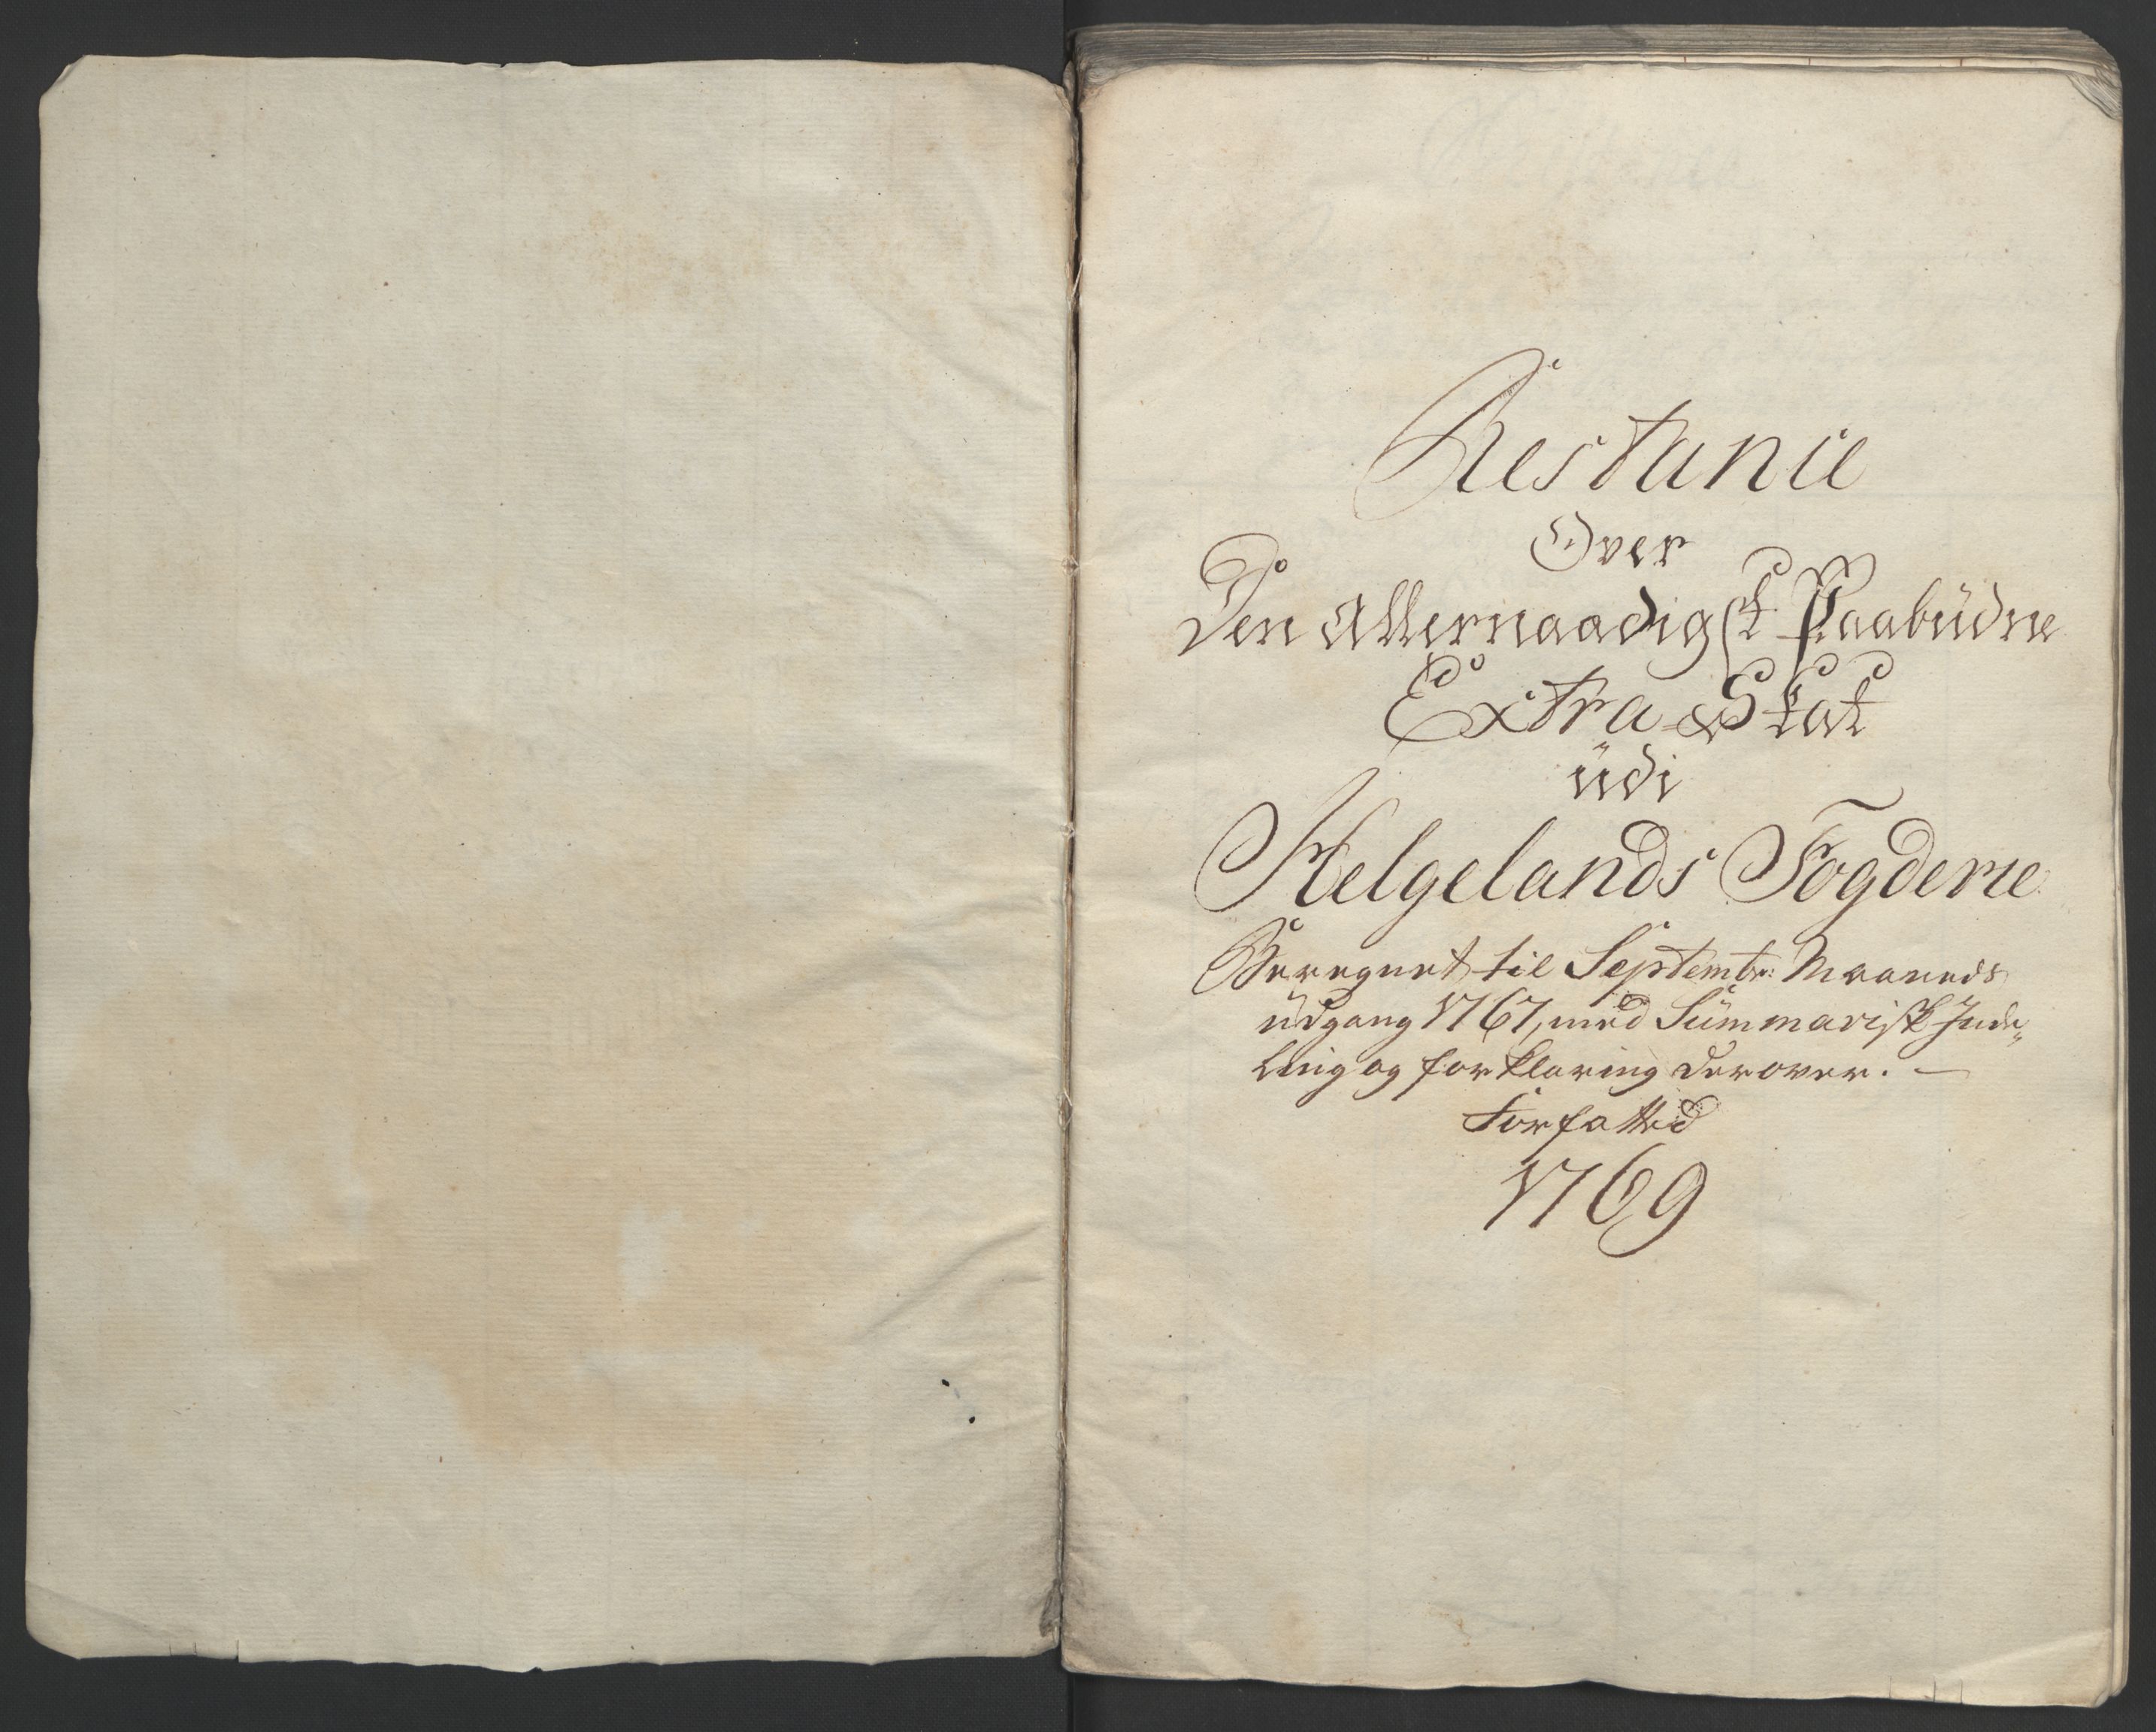 Restanie
Over
Den Allernaadigst Paabüdne
Extra Skat
üdi
Helgelands Fogderie
Beregnet til Septembr: Maaneds
üdgang 1767, med Summarisk Inde„
ling og forklaring derover. —
Forfatted
1769